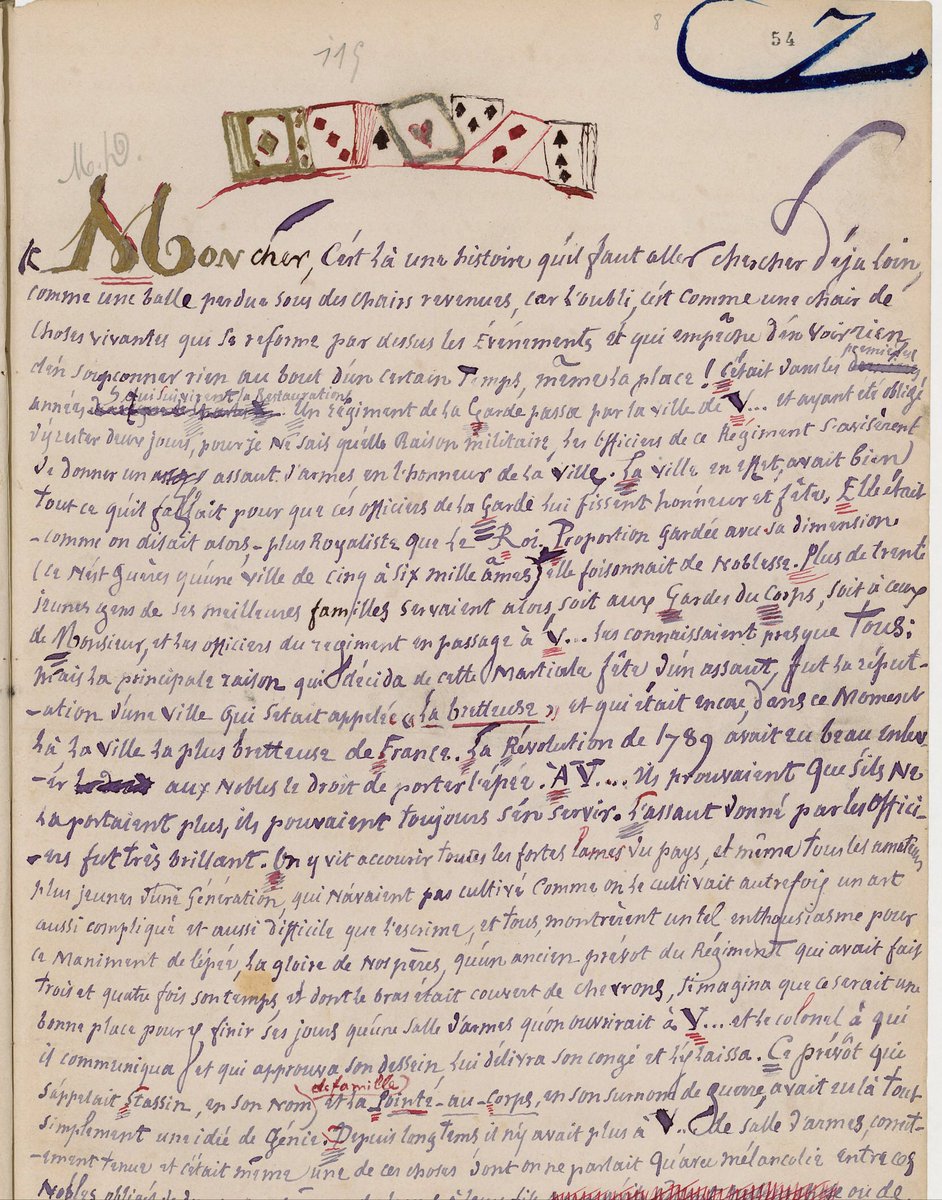 119
8
54
M.D.
Mon cher, C'est là une histoire qu'il faut aller chercher déjà loin,
comme une balle perdue sous des chairs revenues, car l'oubli, c'est comme une chair de
choses vivantes qui se reforme par dessus les Événements et qui empêche d'en voir rien
d'en soupçonner rien au bout d'un certain Temps, même la place ! C'était dans les premières
années qui suivirent la Restauration. Un Régiment de la Garde passa par la ville de V... et ayant été obligé
d'y rester deux jours, pour je ne sais quelle Raison militaire, les officiers de ce Régiment s'avisèrent
de donner un assaut d'armes en l'honneur de la ville. La ville, en effet, avait bien
tout ce qu'il fallait pour que ces officiers de la Garde lui fissent honneur et fête. Elle était
- comme on disait alors - plus Royaliste que Le Roi. Proportion gardée avec sa dimension
(ce n'est guères qu'une ville de cinq à six mille âmes) elle foisonnait de Noblesse. Plus de trente
jeunes gens de ses meilleures familles servaient alors, soit aux Gardes du Corps, soit à ceux
de Monsieur, et les officiers du régiment en passage à V... les connaissaient presque Tous.
Mais la principale raison qui décida de cette Martiale fête d'un assaut, fut la réput-
-ation d'une ville qui s'était appelée « La bretteuse » et qui était encore, dans ce Moment
là la ville la plus bretteuse de France. La Révolution de 1789 avait eu beau enlev-
-er aux Nobles le droit de porter l'épée. À V.... ils prouvaient que s'ils Ne
la portaient plus, ils pouvaient toujours s'en servir. L'assaut donné par les Offici-
-ers fut très brillant. On y vit accourir toutes les fortes lames du pays, et même tous les amateurs
plus jeunes d'une Génération, qui n'avaient pas cultivé comme on le cultivait autrefois un art
aussi compliqué et aussi difficile que l'escrime, et tous, montrèrent un tel enthousiasme pour
ce Maniment de l'épée, la gloire de Nos pères, qu'un ancien prévot du Régiment qui avait fait
trois et quatre fois son temps et dont le bras était couvert de chevrons, s'imagina que ce serait une
bonne place pour y finir ses jours qu'une salle d'armes qu'on ouvrirait à V... et le colonel à qui
il communiqua et qui approuva son dessein lui délivra son congé et l'y laissa. Ce prévôt qui
s'appelait Stassin, en son Nom de famille et La Pointe-au-Corps, en son surnom de guerre, avait eu là tout
simplement une idée de Génie. Depuis longtems il n'y avait plus à V... de salle d'armes, correct-
-ement tenue et c'était même une de ces choses dont on ne parlait qu'avec mélancolie entre ces
Nobles obligés de